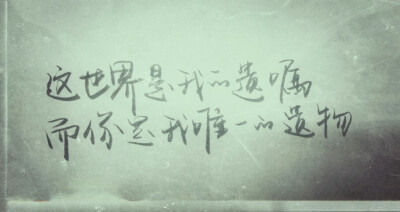 这世界是我的遗嘱
而你是我唯一的遗物